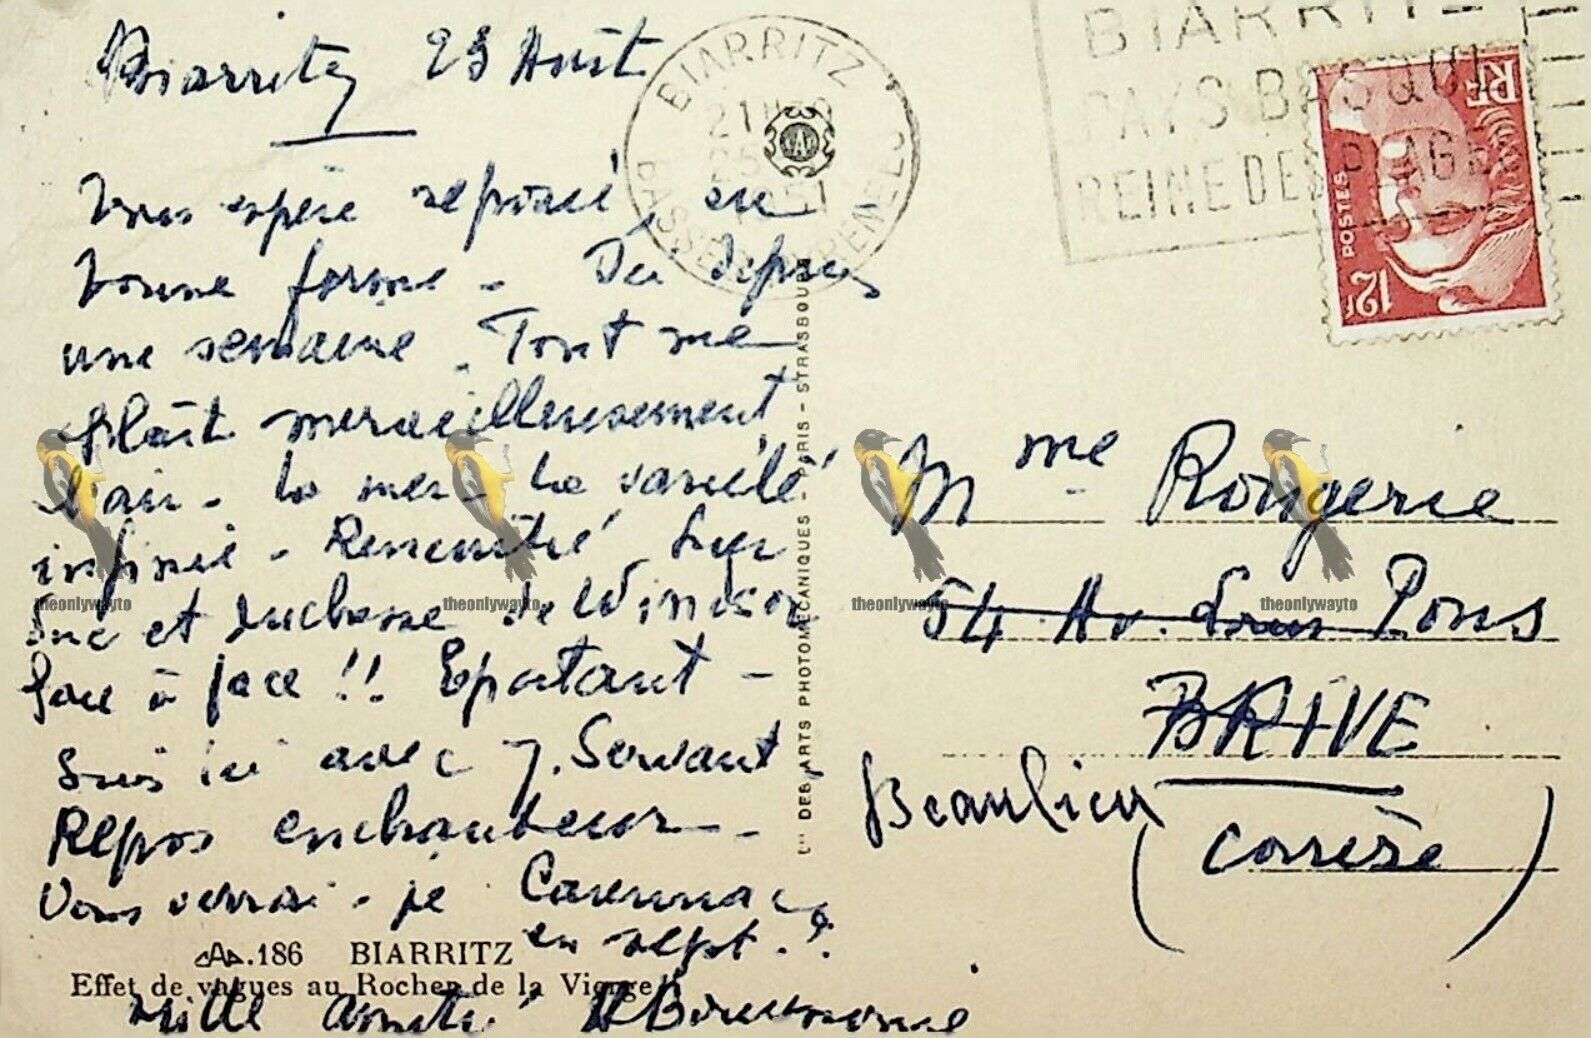 Biarritz 23 Août
Vous espère reposé, en
bonne forme - Ici depuis
une semaine. Tout me
plaît merveilleusement
l'air - la mer - la variété
infinie - Rencontré hier
Duc et duchesse de Windsor
face à face !! Epatant -
Suis ici avec J. Servant
Repos enchanteur -
Vous verrai-je Carennac
en sept. ?
Mille amitié
BIARRITZ
21H
25
1951
BASSES-PYRENEES
BIARRITZ
PAYS BASQUE
REINE DES PLAGES
RF
POSTES
12F
DES ARTS PHOTOMECANIQUES - PARIS - STRASBOURG
Mme Rougerie
54 Av. Pons
BRIVE
Beaulieu
(Corrèze)
.186 BIARRITZ
Effet de vagues au Rocher de la Vierge
theonlywayto theonlywayto theonlywayto theonlywayto